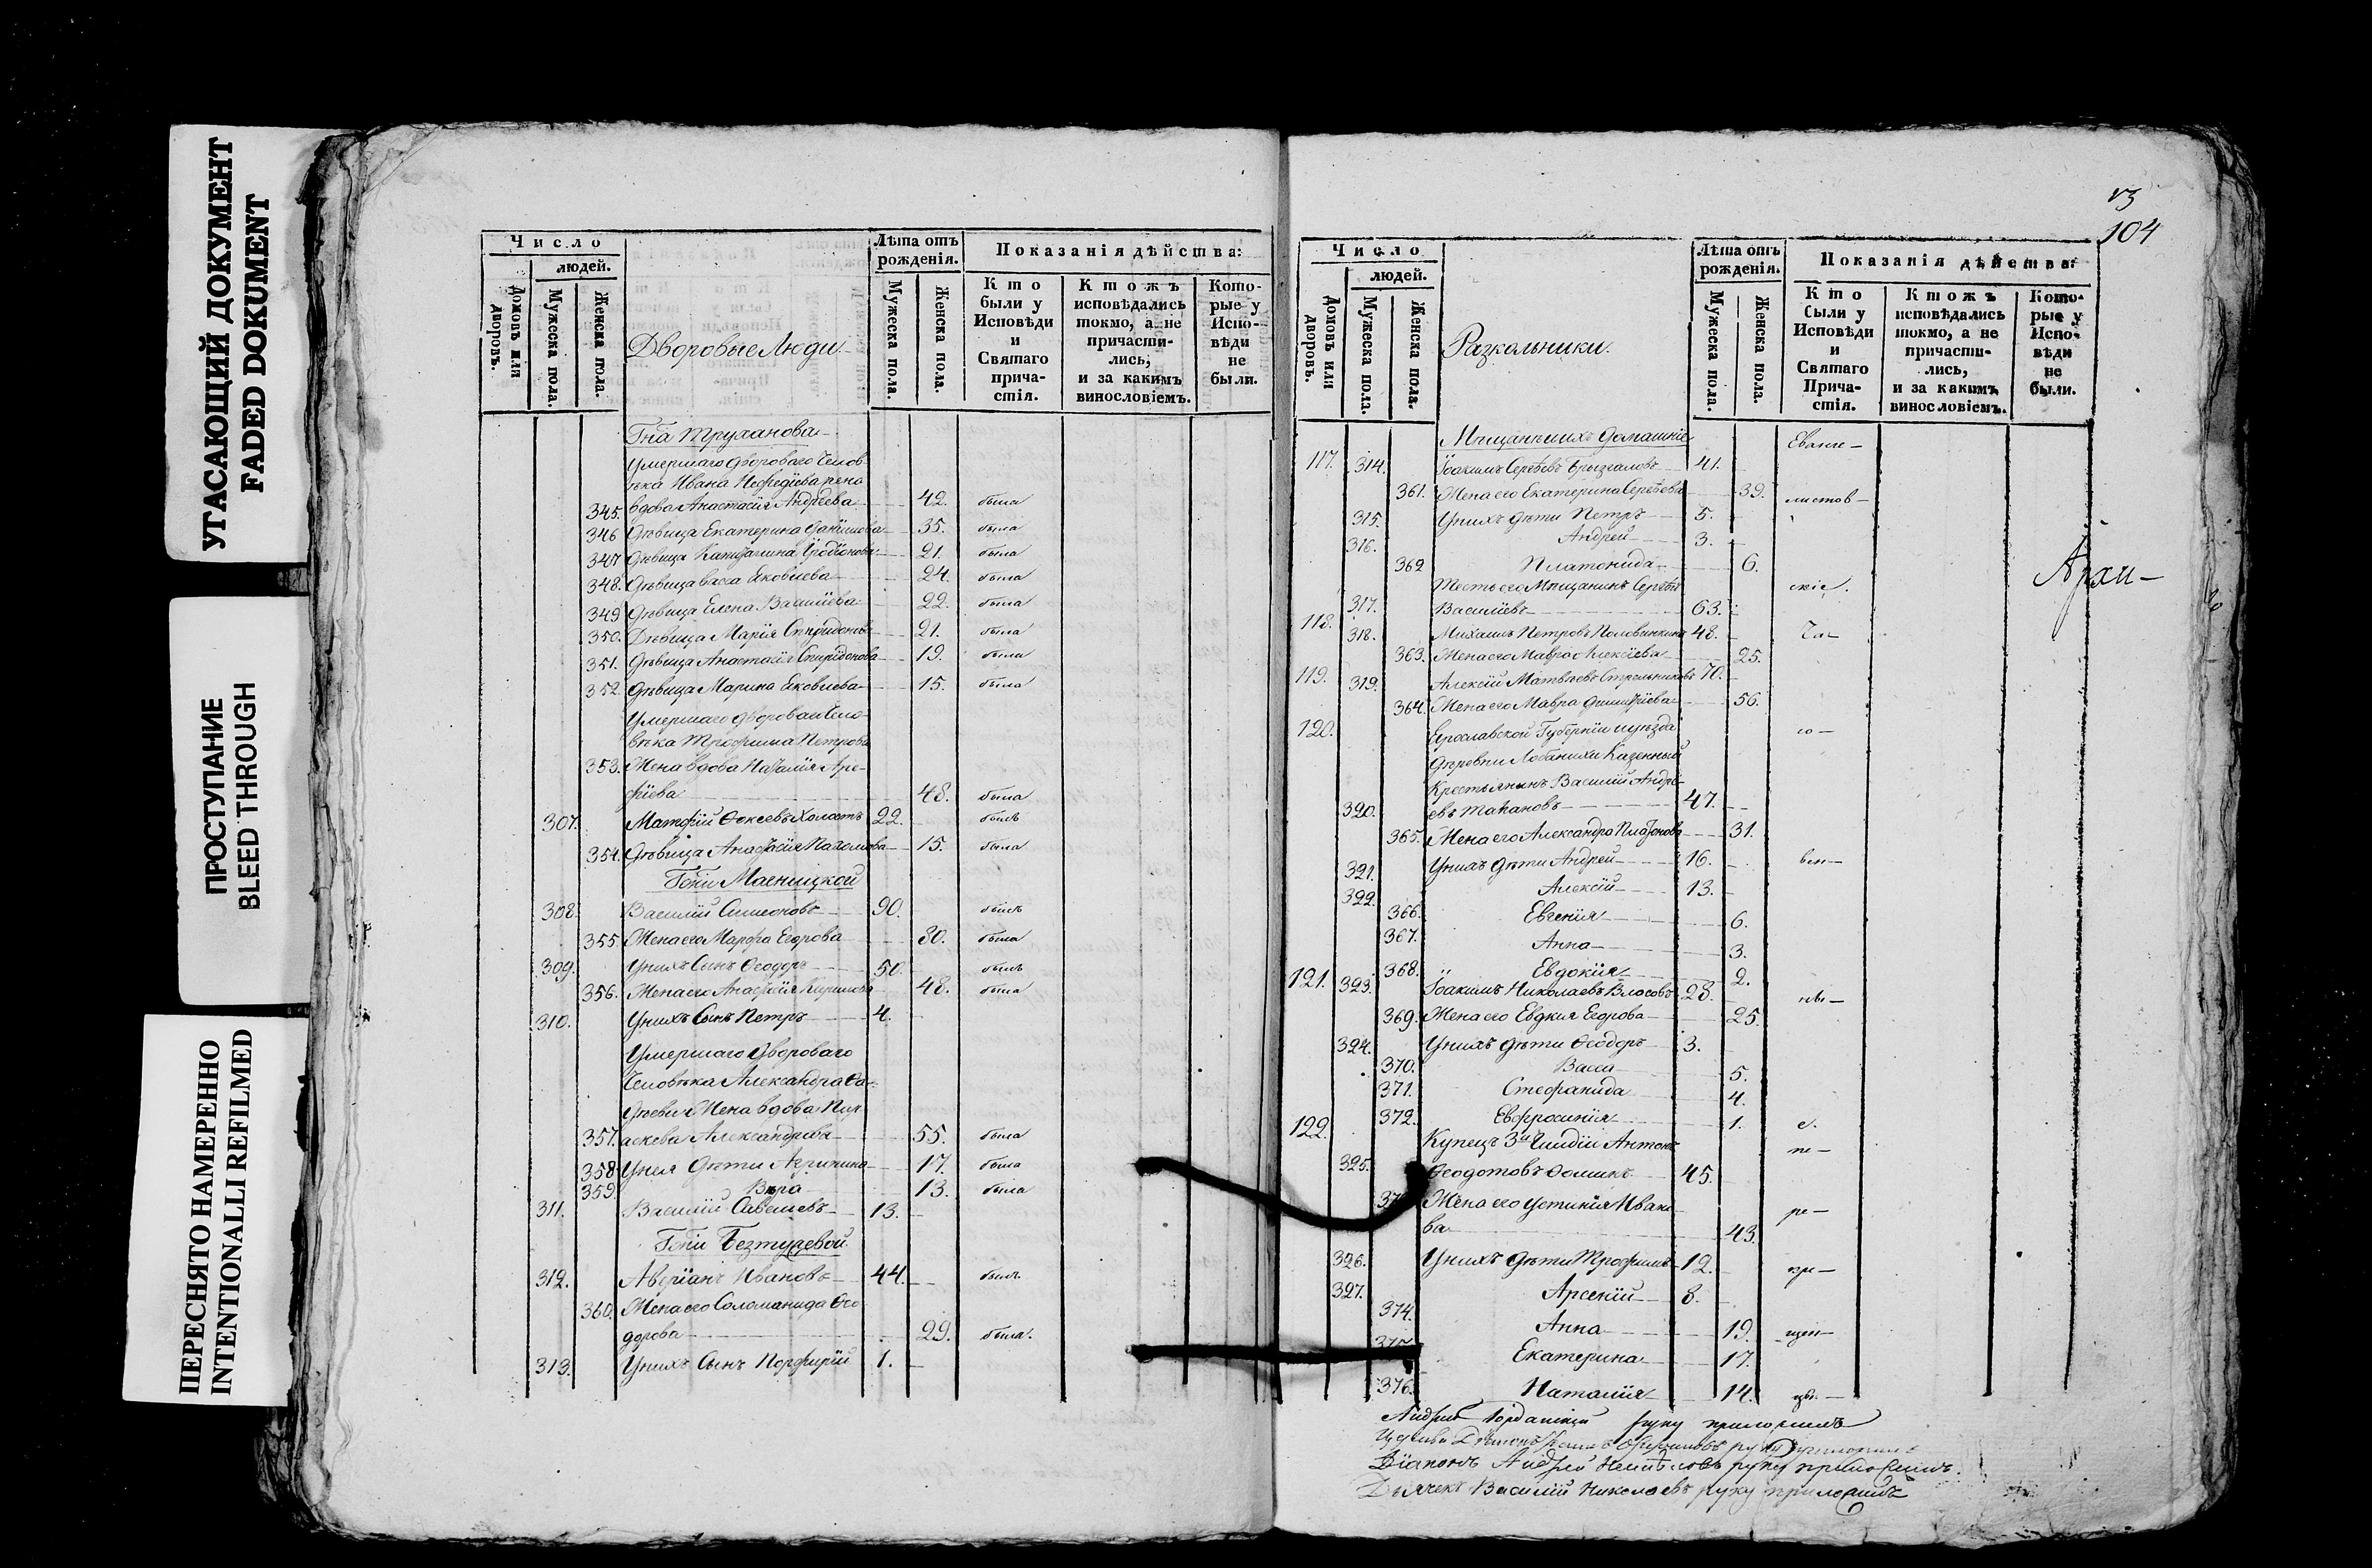 УГАСАЮЩИЙ ДОКУМЕНТ
FADED DOKUMENT
ПРОСТУПАНИЕ
BLEED THROUGH
ПЕРЕСНЯТО НАМЕРЕННО
INTENTIONALLI REFILMED
Число
людей.
Домовъ или дворовъ.
Мужеска пола.
Женска пола.
Дворовые Люди
Лѣта отъ рожденія.
Мужеска пола.
Женска пола.
Показанія дѣйства:
Кто были у Исповѣди и Святаго прича-стія.
Ктожъ исповѣдались токмо, а не причасти-лись, и за какимъ винословіемъ.
Кото-рые у Испо-вѣди не были.
Гна Труханова
Умершаго двороваго Челов
ѣка Ивана Нефедіева жена
345. вдова Анастасія Андреева 42. была
346 Дѣвица Екатерина Данилова 35. была
347 Дѣвица 21. была
348. Дѣвица Васса Яковлева 24. была
349 Дѣвица Елена Василіева 22. была
350. Дѣвица Марія Спиридонова 21. была
351. Дѣвица Анастасія Спиридонова 19. была
352 Дѣвица Марина Яковлева 15. была
Умершаго двороваго Чело-
вѣка Трофима Петрова
353. Жена вдова Наталія Аре-
фіева 48. была
307. Матфій Ѳокеевъ Холостъ 22. былъ
354. Дѣвица Анастасія Пахомова 15. была
Гжи Мосницкой
308. Василій Симеоновъ 90. былъ
355. Жена его Марфа Егорова 80. была
309. У нихъ Сынъ Ѳеодоръ 50. былъ
356. Жена его Анастасія Кирилова 48. была
310. У нихъ Сынъ Петръ 4.
Умершаго двороваго
Человѣка Александра Ѳа-
дѣева Жена вдова Пар
357. аскева Александрова 55. была
358 У нея дѣти Агрипина 17. была
359. Вѣра 13. была
311. Василій Савельевъ 13.
Гжи Безтужевой
312. Аверіанъ Ивановъ 44. былъ
360. Жена его Соломанида Ѳео
дорова 29. была.
313. У нихъ Сынъ Порфирій 1.
13
104
Число
людей.
Домовъ или дворовъ.
Мужеска пола.
Женска пола.
Разкольники.
Лѣта отъ рожденія.
Мужеска пола.
Женска пола.
Показанія дѣйства:
Кто были у Исповѣди и Святаго Прича-стія.
Ктожъ исповѣдались токмо, а не причасти-лись, и за какимъ винословіемъ.
Кото-рые у Испо-вѣди не были.
Мѣщанъ и ихъ домашніе Еванге-
117. 314. Іоакимъ Сергѣевъ Брызгаловъ 41.
361. Жена его Екатерина Сергѣева 39. листов-
315. У нихъ дѣти Петръ 5.
316. Андрей 3.
362 Платонида 6. Архи-
Тесть его Мѣщанинъ Сергѣй скіе.
317. Василіевъ 63.
118. 318. Михаилъ Петровъ Половинкинъ 48.
363. Жена его Мавра Алексіева 25.
119. 319. Алексій Матвѣевъ Стрельниковъ 70.
364. Жена его Мавра Димитріева 56.
120. Ярославской Губерніи и уѣзда го-
Деревни Лобанихи Казенный
Крестьянинъ Василій Андре
320. евъ Таћановъ 47.
365. Жена его Александра Платонова 31.
321. У нихъ дѣти Андрей 16.
322. Алексій 13.
366. Евгенія 6.
367. Анна 3.
368. Евдокія 2.
121. 323. Іоакимъ Николаевъ Власовъ 28.
369. Жена его Евдкия Егорова 25.
324. У нихъ дѣти Ѳеодоръ 3.
370. Васса 5.
371. Стефанида 4.
372. Евфросинія 1.
122. Купецъ 3й Гилдіи Антонъ
325. Ѳеодотовъ Ѳоминъ 45.
Жена его Устинія Ивано
ва 43.
326. У нихъ дѣти Трофимъ 12.
327. Арсеній 8.
374. Анна 19.
375. Екатерина 17.
376. Наталія 14.
руку приложилъ
Діаконъ Андрей руку приложилъ.
Дьячекъ Василій Николаевъ руку приложилъ